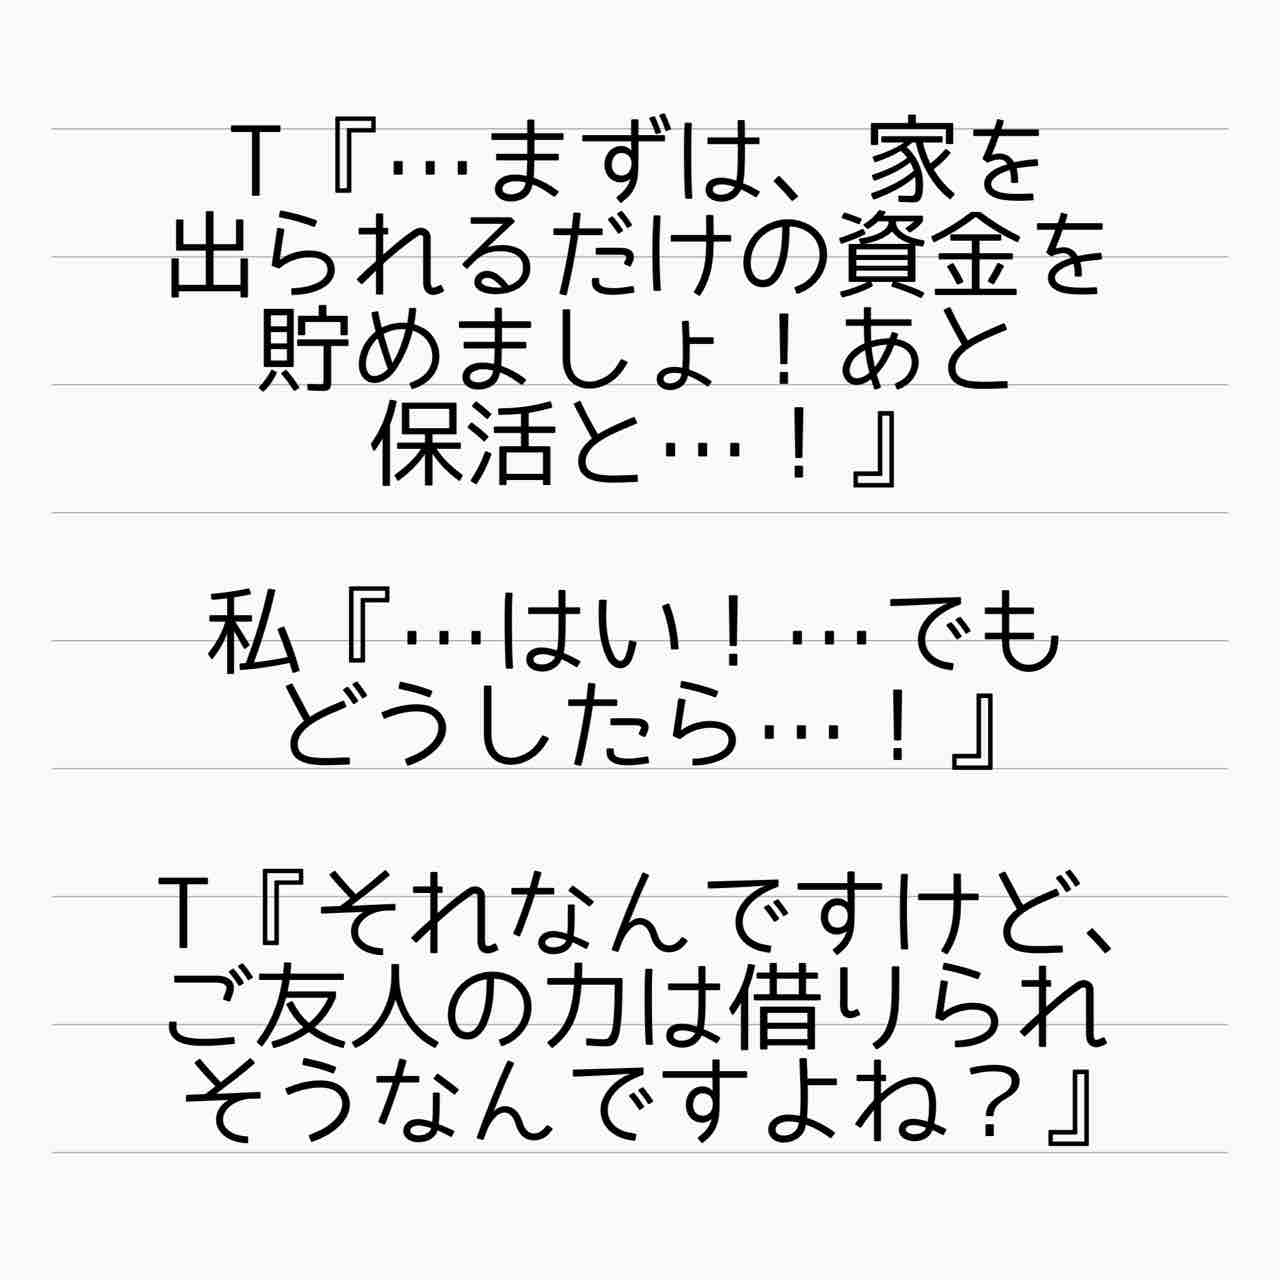 T『…まずは、家を
出られるだけの資金を
貯めましょ！あと
保活と…！』
私『…はい！…でも
どうしたら…！』
T『それなんですけど、
ご友人の力は借りられ
そうなんですよね？』